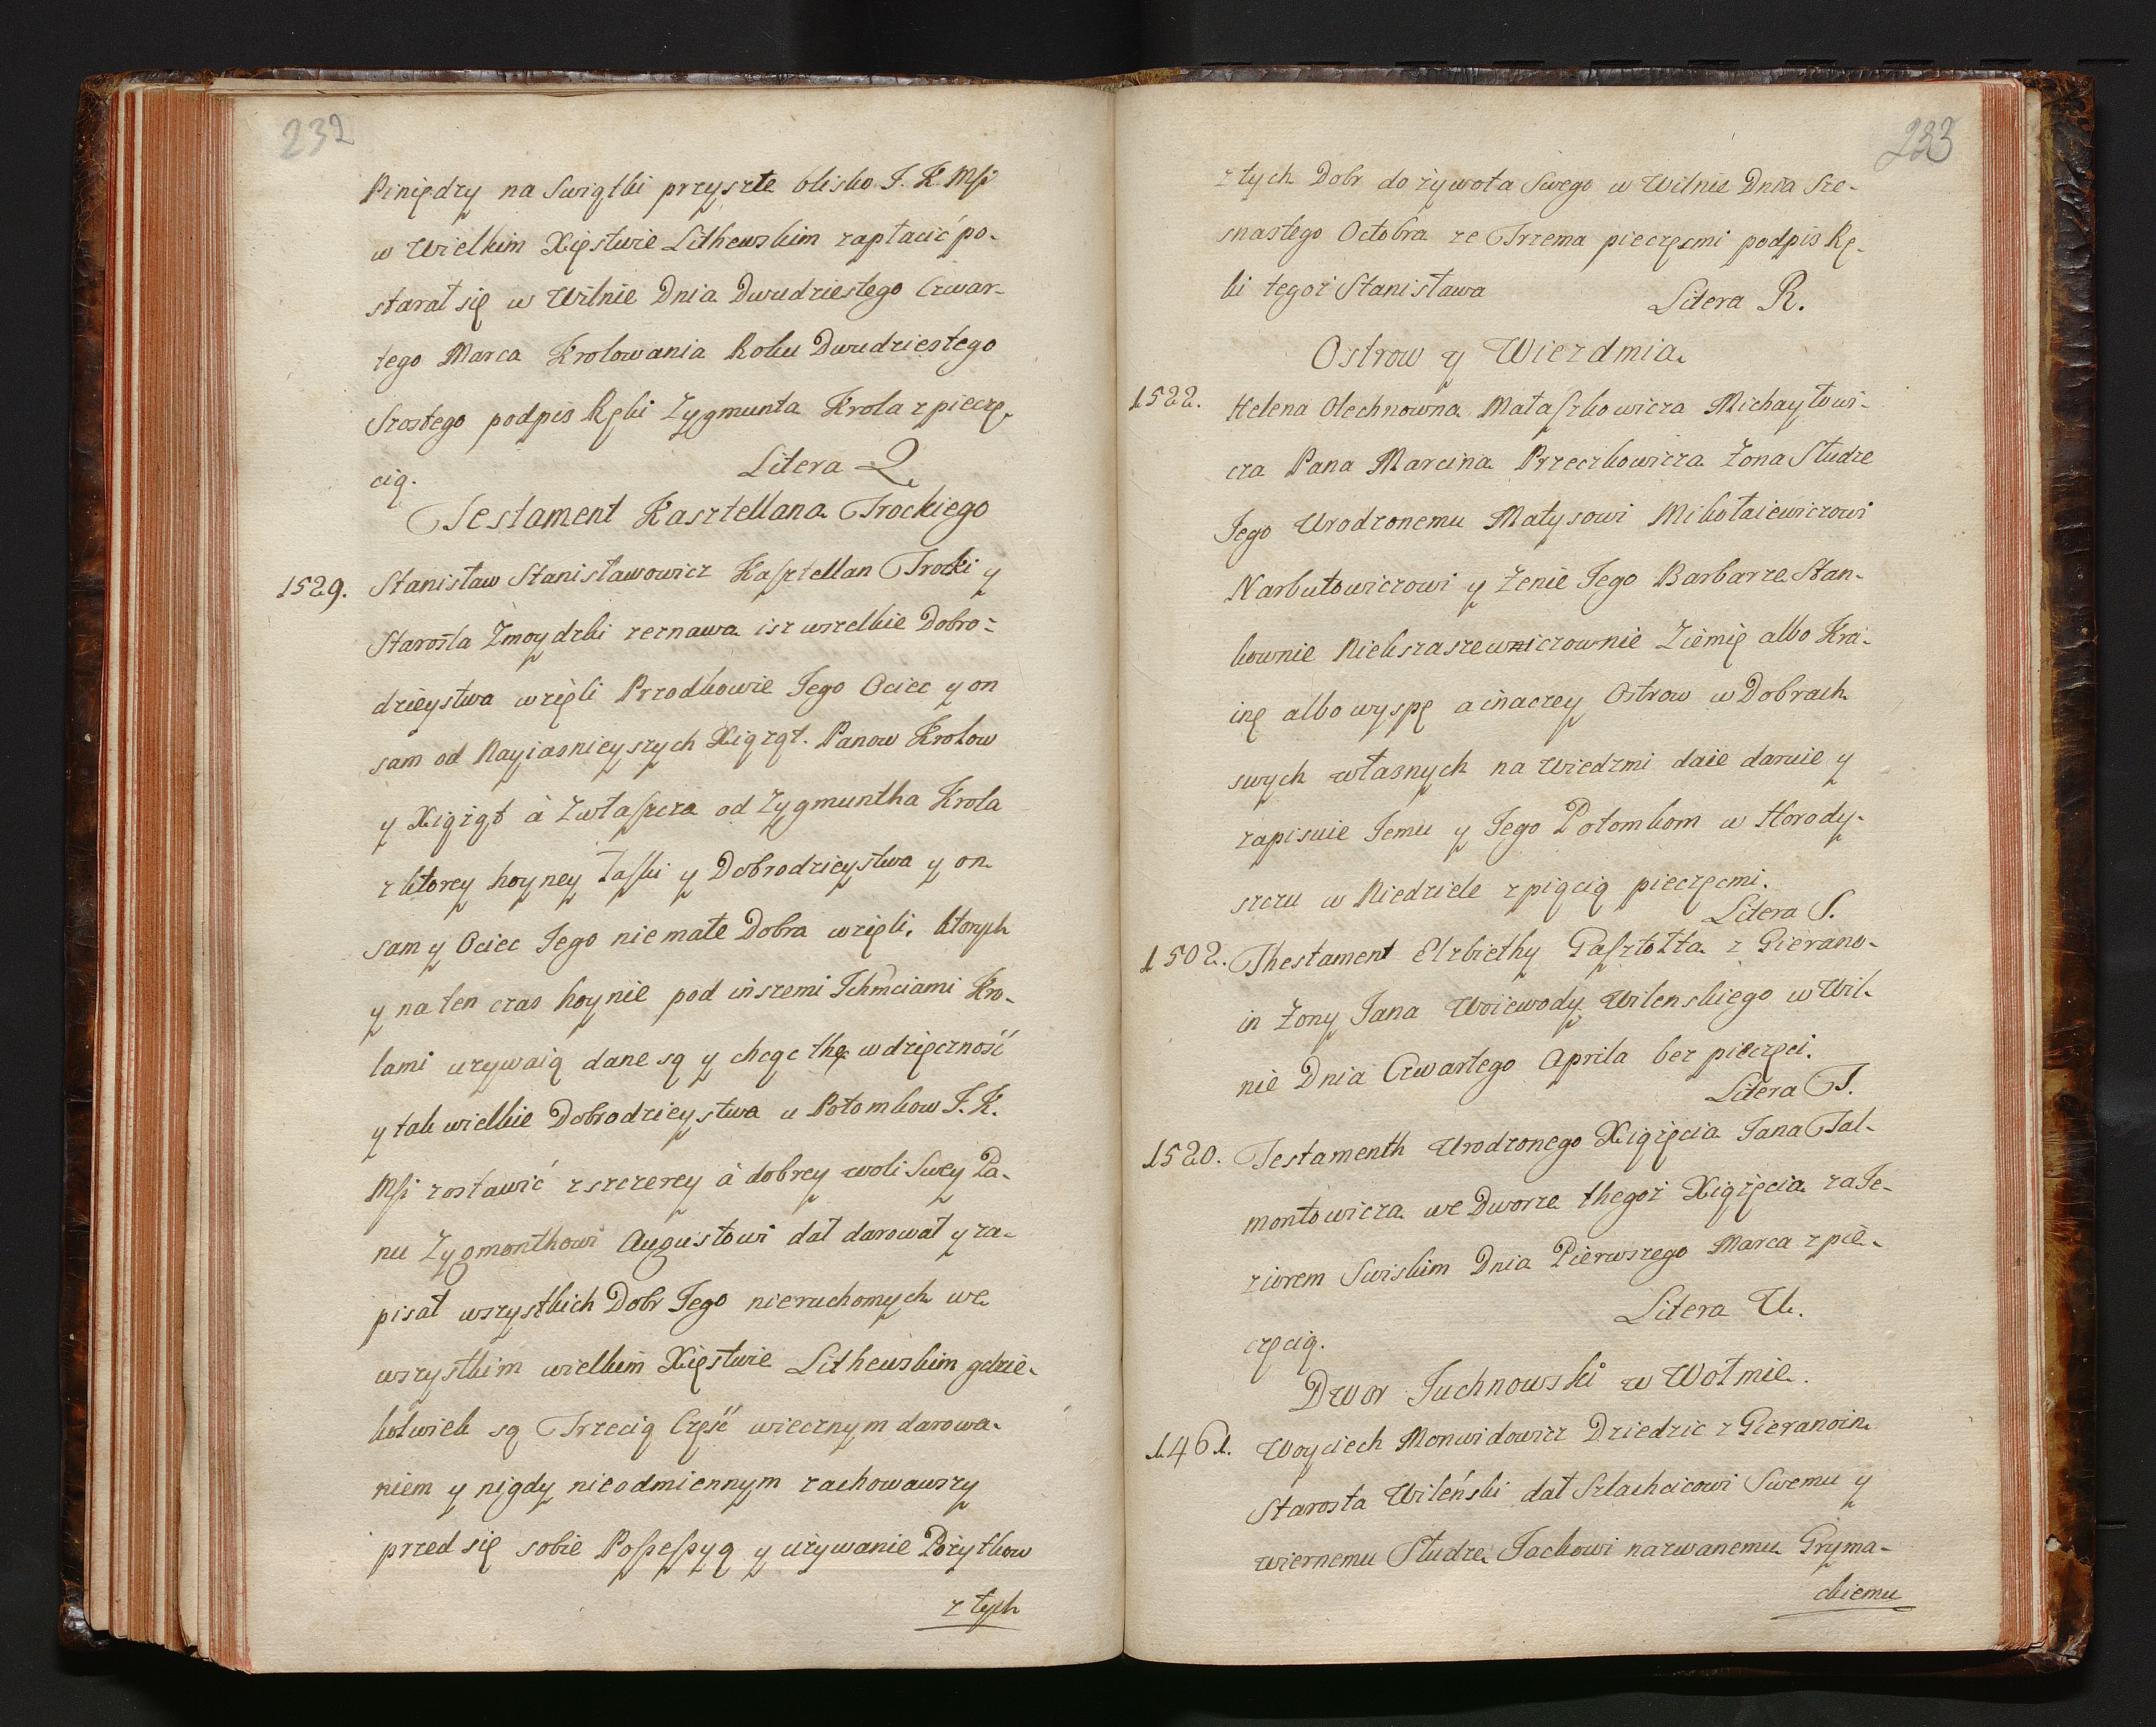 232
Piniędzy na Swiątki przyszłe blisko J. K. Mſi
w Wielkim Xięstwie Lithewskim zapłacić po-
starał się w Wilnie Dnia Dwudziestego Czwar-
tego Marca Krolowania Roku Dwudziestego
Szostego podpis Ręki Zygmunta Krola z pieczę-
cią. Litera Q
Testament Kasztellana Trockiego
1529. Stanisław Stanisławowicz Kaſztellan Trocki y
Starosta Zmoydzki zeznawa isz wszelkie Dobro-
dzieystwa wzięli Przodkowie Jego Ociec y on
sam od Nayiasnieyszych Xiążąt. Panow Krolow
y Xiążąt à Zwłaſzcza od Zygmuntha Krola
z ktorey hoyney Łaſki y Dobrodzieystwa y on
sam y Ociec Jego nie małe Dobra wzięli, ktorych
y na ten czas hoynie pod inszemi Ichmciami Kro-
lami uzywaią dane są y chcąc thę wdzięczność
y tak wielkie Dobrodzieystwa u Potomkow J. K.
Mſi zostawić z szczerey à dobrey woli Swey Pa-
nu Zygmonthowi Augustowi dał darował y za-
pisał wszystkich Dobr Jego nieruchomych we
wszystkim wielkim Xięstwie Lithewskim gdzie-
kolwiek są Trzecią Część wiecznym darowa-
niem y nigdy nieodmiennym zachowawszy
przed się sobie Poſseſsyą y używanie Pożytkow
z tych
233
z tych Dobr do żywota Swego w Wilnie Dnia Sze-
snastego Octobra ze Trzema pieczęcmi podpis Rę-
ki tegoż Stanisława Litera R.
Ostrow y Wiezdmia
1522. Helena Olechnowna Mataſzkowicza Michayłowi-
cza Pana Marcina Przeczkowicza Żona Słudze
Jego Urodzonemu Matysowi Mikołaiewiczowi
Narbutowiczowi y Żenie Jego Barbarze Stan-
kownie Niekszaszewniczownie Ziemię albo Krai-
inę albo wyspę a inaczey Ostrow w Dobrach
swych własnych na Wiedzmi daie daruie y
zapisuie Jemu y Jego Potomkom w Horody-
szczu w Niedziele z piącią pieczęcmi.
Litera S.
1502. Thestament Elzbiethy Gaſztołta z Gierano-
in Żony Jana Woiewody Wilenskiego w Wil-
nie Dnia Czwartego Aprila bez pieczęci.
Litera T.
1520. Testamenth Urodzonego Xiążęcia Jana Tal-
montowicza we Dworze thegoż Xiążęcia za Je-
ziorem Swiskim Dnia Pierwszego Marca z pie-
częcią. Litera U.
Dwor Juchnowski w Wołmie.
1461. Woyciech Monwidowicz Dziedzic z Gieranoin
Starosta Wileński dał Szlachcicowi Swemu y
wiernemu Słudze Jackowi nazwanemu Gryma-
ckiemu